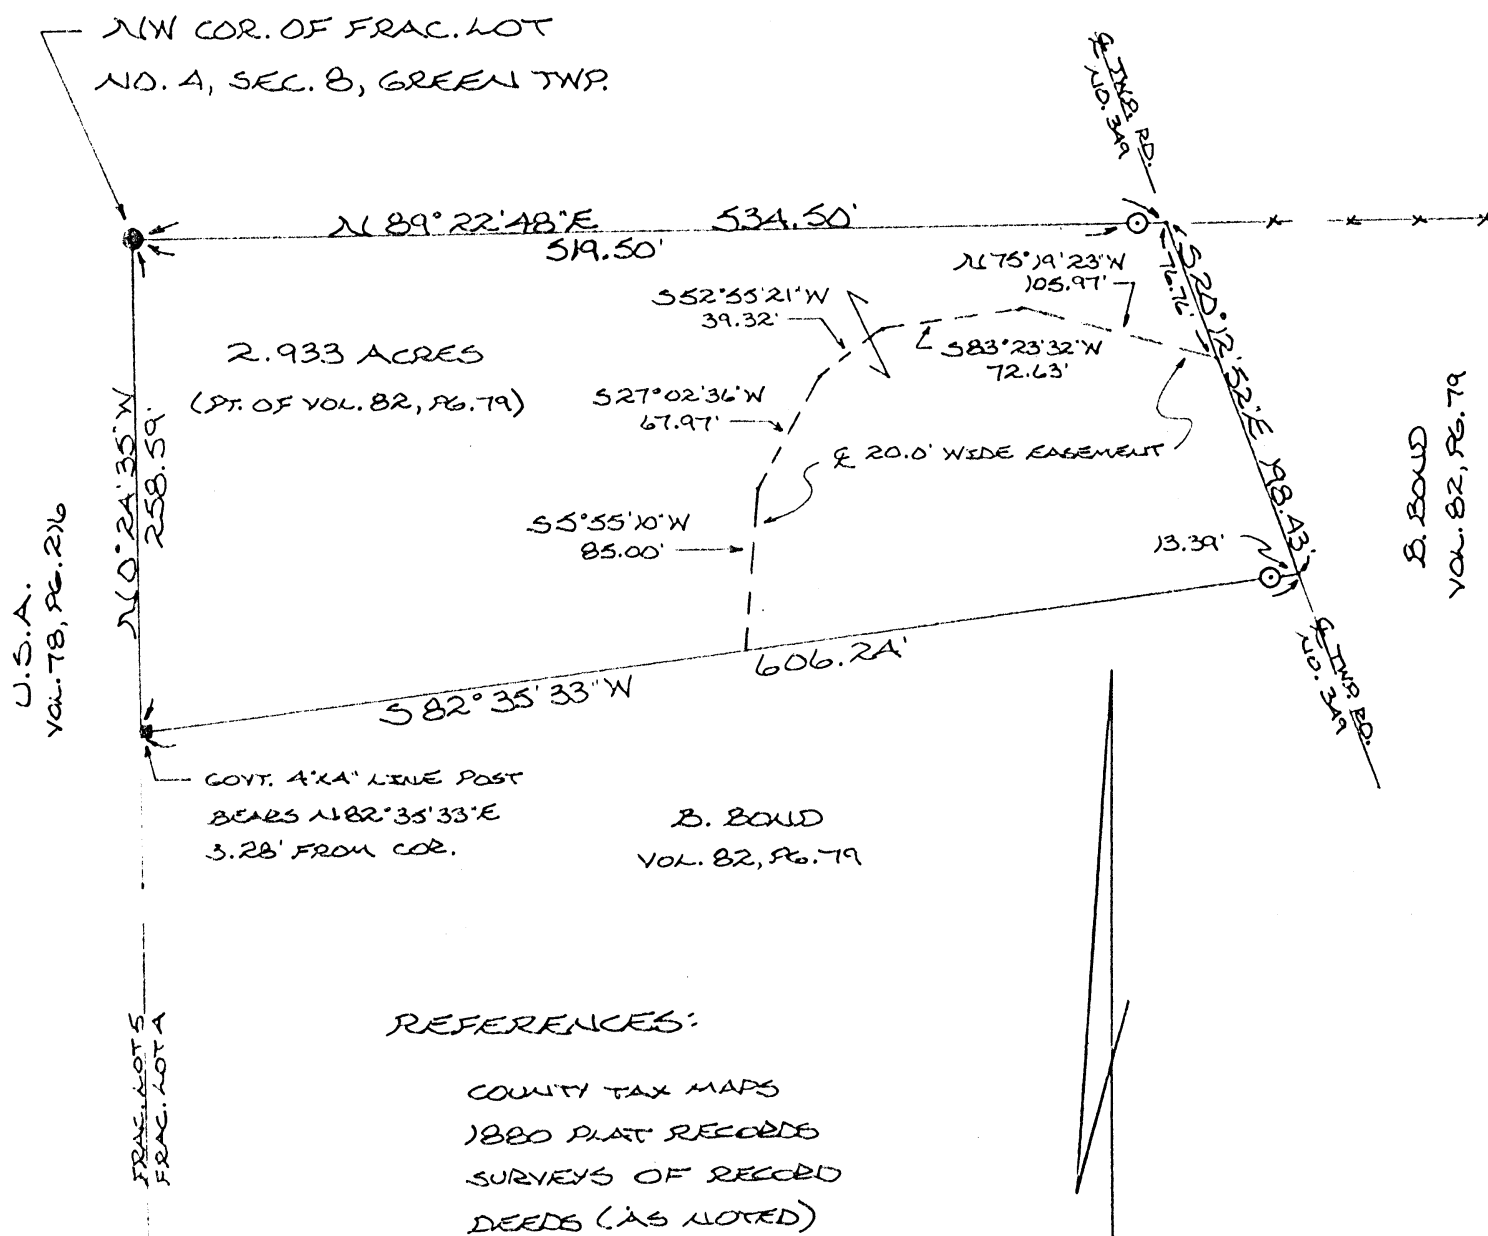 NW COR. OF FRAC. LOT
NO. 4, SEC. 8, GREEN TWP.
℄ TWP. RD.
NO. 349
N 89° 22' 48" E 534.50'
519.50'
N 75° 19' 23" W
105.97'
76.76'
S 20° 12' 52" E 198.43'
S 52° 55' 21" W
39.32'
S 83° 23' 32" W
72.63'
2.933 ACRES
(PT. OF VOL. 82, PG. 79)
S 27° 02' 36" W
67.97'
℄ 20.0' WIDE EASEMENT
N 0° 24' 35" W
258.59'
S 5° 55' 10" W
85.00'
13.39'
B. BOND
VOL. 82, PG. 79
U.S.A.
VOL. 78, PG. 216
606.24'
S 82° 35' 33" W
℄ TWP. RD.
NO. 349
GOVT. 4"X4" LINE POST
BEARS N 82° 35' 33" E
3.28' FROM COR.
B. BOND
VOL. 82, PG. 79
FRAC. LOT 5
FRAC. LOT 4
REFERENCES:
COUNTY TAX MAPS
1880 PLAT RECORDS
SURVEYS OF RECORD
DEEDS (AS NOTED)